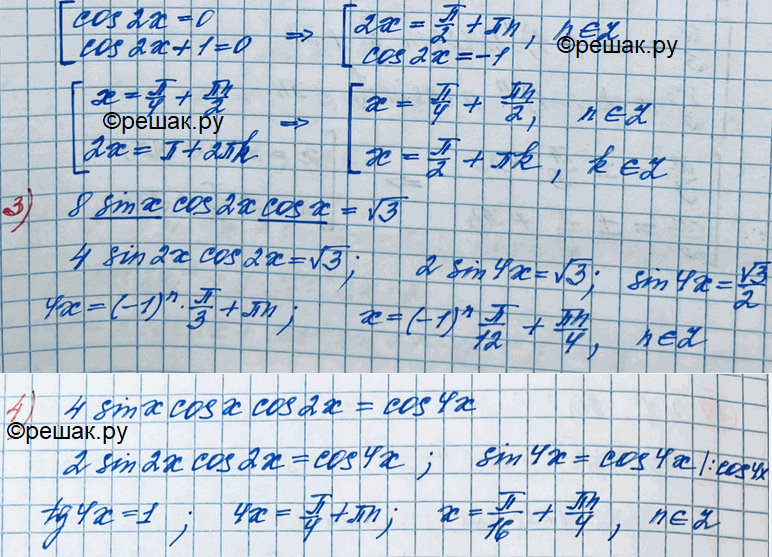 [cos2x=0 ⇒ [2x=π/2+πn, n∈Z
cos2x+1=0 cos2x=-1
©решак.ру
[x=π/4+πn/2 ⇒ [x=π/4+πn/2, n∈Z
©решак.ру
2x=π+2πk x=π/2+πk, k∈Z
3) 8 sinx cos2x cosx = √3
4 sin2x cos2x=√3; 2 sin4x=√3; sin4x=√3/2
4x=(-1)ⁿ·π/3+πn; x=(-1)ⁿ π/12 + πn/4, n∈Z
4) 4 sinx cosx cos2x = cos4x
©решак.ру
2 sin2x cos2x=cos4x; sin4x=cos4x |:cos4x
tg4x=1; 4x=π/4+πn; x=π/16+πn/4, n∈Z